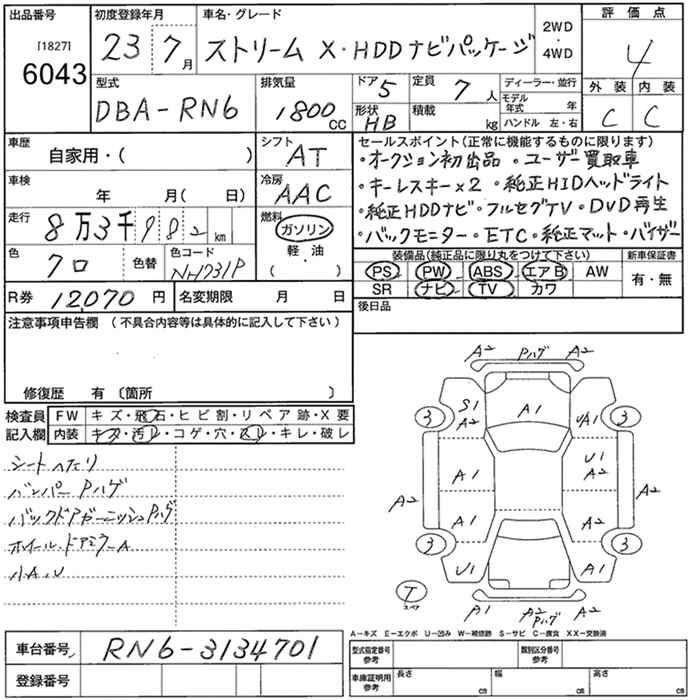 出品番号 初度登録年月 車名・グレード 2WD・4WD 評価点
[1827]
6043
23 7月 ストリーム X・HDDナビパッケージ 4
型式 排気量 ドア 5 定員 7人 ディーラー・並行 外装 内装
DBA-RN6 1800cc 形状 HB 積載 kg モデル年式 年 C C
ハンドル 左・右
車歴 シフト セールスポイント(正常に機能するものに限ります)
自家用・( ) AT ・オークション初出品 ・ユーザー買取車
車検 冷房 ・キーレスキー×2 ・純正HIDヘッドライト
年 月(日) AAC ・純正HDDナビ・フルセグTV・DVD再生
走行 8万3千982km 燃料 ガソリン ・バックモニター・ETC・純正マット・バイザー
軽・油
( )
色 クロ 色替 色コード NH731P
装備品(純正品に限り丸をつけて下さい) 新車保証書
PS PW ABS エアB AW 有・無
SR ナビ TV カワ
R券 12,070円 名変期限 月 日 後日品
注意事項申告欄 (不具合内容等は具体的に記入して下さい)
修復歴 有 〔箇所 〕
検査員 FW キズ・飛石・ヒビ割・リペア跡・X要
記入欄 内装 キズ・汚レ・コゲ・穴・スレ・キレ・破レ
シートヘタリ
バンパーPハゲ
バックドアガーニッシュPハゲ
ホイール、ドアミラーA
小A、U
A2 Pハゲ A2
S1 A2 A1 UA1
3 3
A1 U1 A2
A2 A2
A1 A2
3 3
U1 A1
T スペア
A1 A2 Pハゲ A2
A-キズ E-エクボ U-凹み W-補修跡 S-サビ C-腐食 XX-交換済
車台番号 RN6-3134701
登録番号
型式指定番号 参考 類別区分番号 参考
車庫証明用 参考 長さ cm 幅 cm 高さ cm